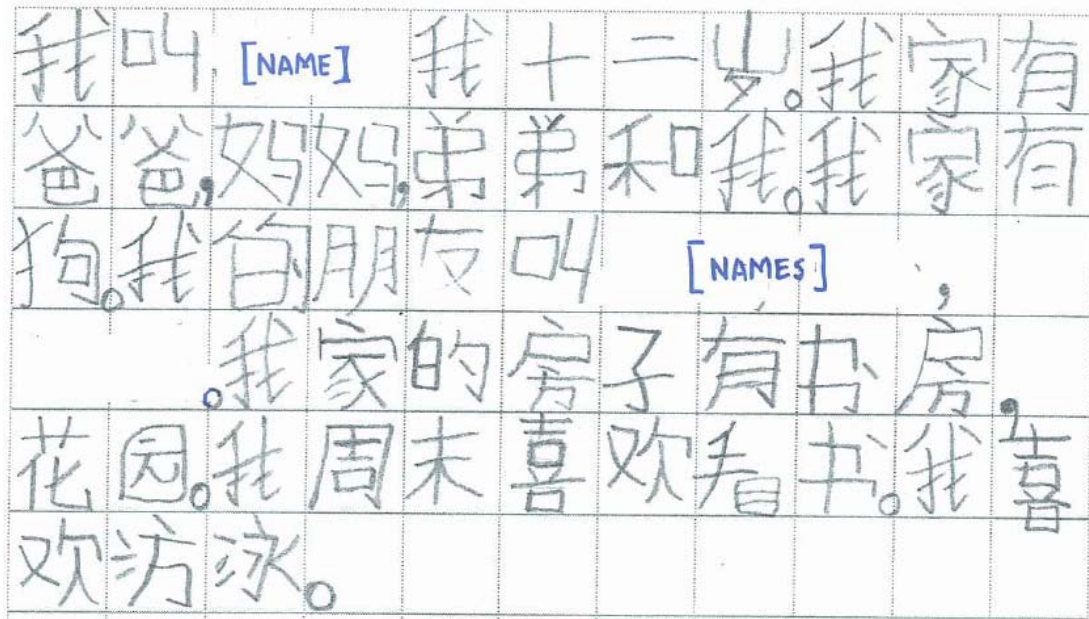 我叫, [NAME] 我十二岁。我家有
爸爸,妈妈,弟弟和我。我家有
狗。我的朋友叫 [NAMES] ,
。我家的房子有书房,
花园。我周末喜欢看书。我喜
欢汸泳。